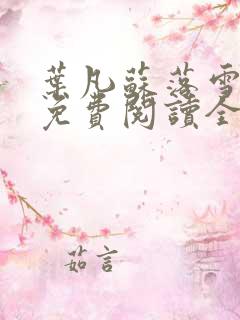 葉凡蘇落雪
免費閱讀全
茹言